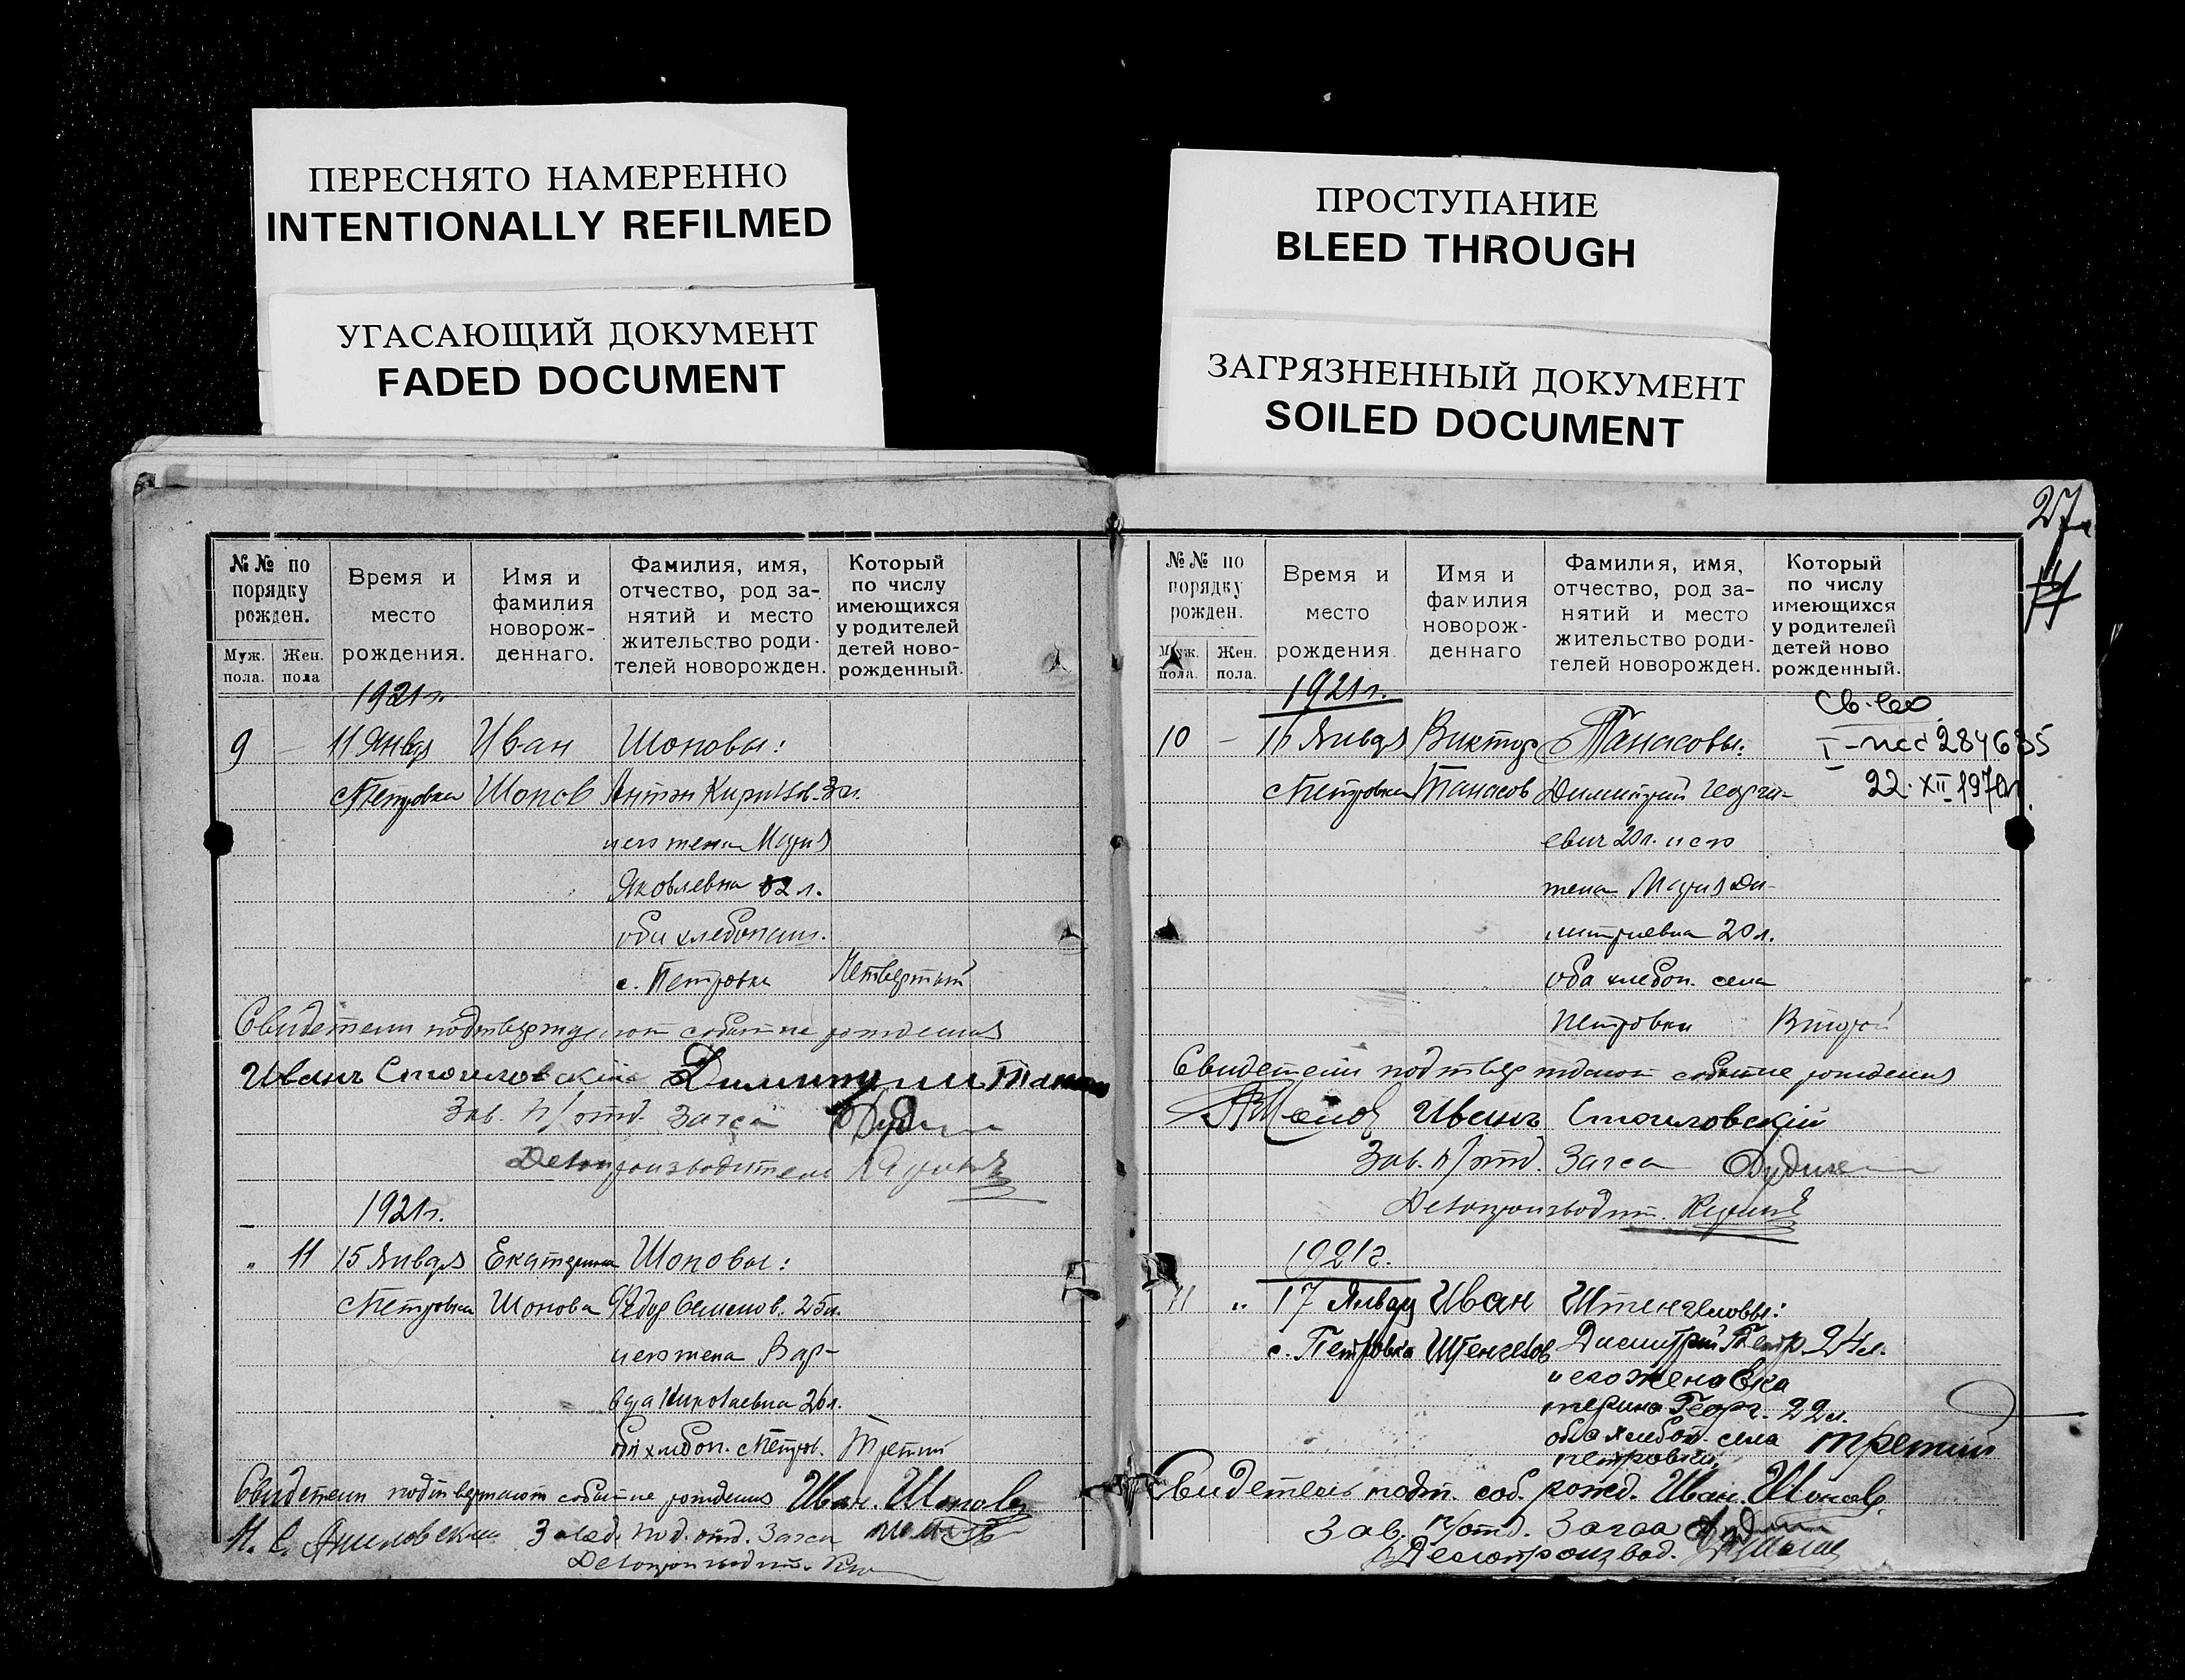 ПЕРЕСНЯТО НАМЕРЕННО
INTENTIONALLY REFILMED
УГАСАЮЩИЙ ДОКУМЕНТ
FADED DOCUMENT
ПРОСТУПАНИЕ
BLEED THROUGH
ЗАГРЯЗНЕННЫЙ ДОКУМЕНТ
SOILED DOCUMENT
№№ по
порядку
рожден.
Муж.
пола.
Жен.
пола
Время и
место
рождения.
Имя и
фамилия
новорож-
деннаго.
Фамилия, имя,
отчество, род за-
нятий и место
жительство роди-
телей новорожден.
Который
по числу
имеющихся
у родителей
детей ново-
рожденный.
1921 г.
9 — 11 Январ Иван Шоповы:
с Петровка Шопов Антон Кирилов. 3 г.
и его жена Мария
Яковлевна 32 л.
оба хлебопаш.
с. Петровки Четвертый
Свидетели подтверждают событие рождения
Иванъ Стоиловскій Димитрий
Зав. п/отд. Загса
Делопроизводитель
1921 г.
" 11 15 Январ Екатерина Шоповы:
с Петровка Шопова Федор Семенов. 25 л.
и его жена Вар-
вара Николаевна 26 л.
оба хлебоп. с Петров. Третий
Свидетели подтверждают событие рождения Иван. Шопов
Завед. под. отд. Загса
Делопроизводит.
27
№№ по
порядку
рожден.
Муж.
пола.
Жен.
пола.
Время и
место
рождения.
Имя и
фамилия
новорож-
деннаго
Фамилия, имя,
отчество, род за-
нятий и место
жительство роди-
телей новорожден.
Который
по числу
имеющихся
у родителей
детей ново
рожденный.
1921 г.
10 — 16 Январ Виктор Танасовы:
I-псс 284635
с Петровка Танасов Димитрий Георги-
22. XII 1970 г.
евич 20 л. и его
жена Мария Ди-
митриевна 20 л.
оба хлебоп. села
Петровки Второй
Свидетели подтверждают событие рождения
Иванъ Стоиловскій
Зав. п/отд. Загса
Делопроизводит.
1921 г.
11 " 17 Январ Иван Штенгеловы:
с. Петровка Штенгелов Димитрий Петр. 24 л.
и его жена Ека
терина Георг. 22 л.
оба хлебоп. села третий
петровки.
Свидетель подт. соб. рожд. Иван. Шопов.
Зав. п/отд. Загса
Делопроизвод.